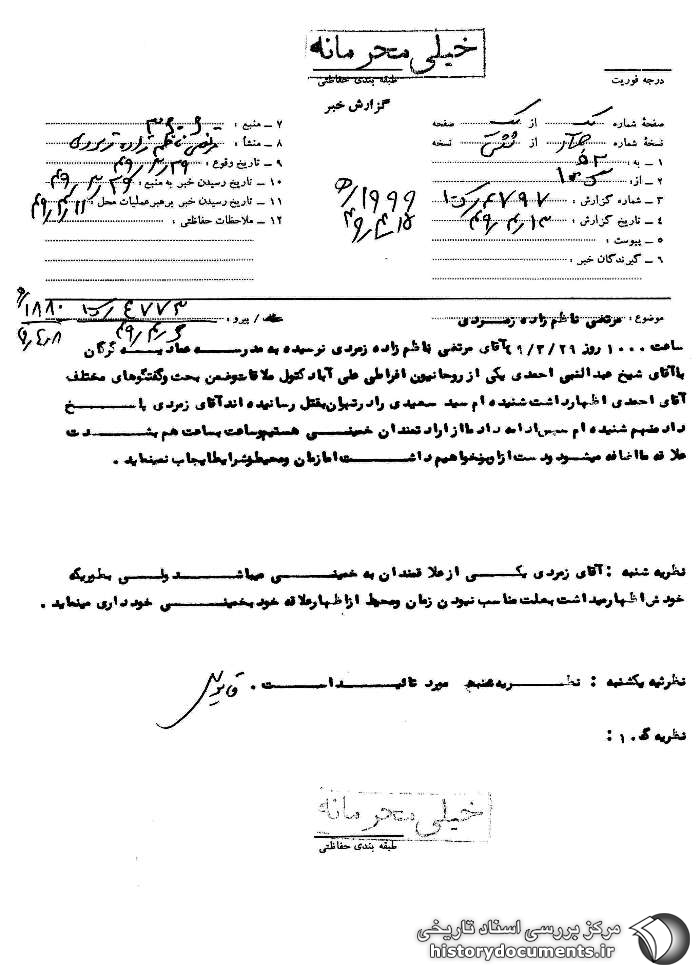 خیلی محرمانه
طبقه بندی حفاظتی
درجه فوریت
گزارش خبر
صفحهٔ شماره یک از یک صفحه
نسخهٔ شماره چهار از شش نسخه
۱ ــ به :
۲ ــ از :
۳ ــ شماره گزارش : ۴۷۹۷
۴ ــ تاریخ گزارش : ۴۹/۴/۱۳
۵ ــ پیوست :
۶ ــ گیرندگان خبر :
۷ ــ منبع :
۸ ــ منشأ : مرتضی ناظم زاده زمردی
۹ ــ تاریخ وقوع : ۴۹/۳/۲۹
۱۰ ــ تاریخ رسیدن خبر به منبع : ۴۹/۳/۲۹
۱۱ ــ تاریخ رسیدن خبر برهبرعملیات محل :
۱۲ ــ ملاحظات حفاظتی :
۱۹۹۹/ه
۴۹/۴/۱۵
موضوع : مرتضی ناظم زاده زمردی
عطف / پیرو : ۴۷۷۳
ساعت ۱۰۰۰ روز ۴۹/۳/۲۹ آقای مرتضی ناظم زاده زمردی نرسیده به مدرسه عمادیه گرگان
باآقای شیخ عبدالنبی احمدی یکی از روحانیون افراطی علی آباد کتول ملاقات وضمن بحث وگفتگوهای مختلف
آقای احمدی اظهارداشت شنیده ام سید سعیدی رادرتهران بقتل رسانیده اند آقای زمردی پاسخ
داد منهم شنیده ام سپس ادامه داد ما از ارادتمندان خمینی هستیم وساعت بساعت هم بشدت
علاقه ما اضافه میشود ودست ازاو برنخواهیم داشت اما زمان ومحیط وشرایط ایجاب نمینماید .
نظریه شنبه : آقای زمردی یکی از علاقمندان به خمینی میباشد ولی بطوریکه
خودش اظهارمیداشت بعلت مناسب نبودن زمان ومحیط ازاظهارعلاقه خود بخمینی خودداری مینماید .
نظریه یکشنبه : نظریه شنبه مورد تائید است .
نظریه ک۱۰ :
خیلی محرمانه
طبقه بندی حفاظتی
مرکز بررسی اسناد تاریخی
historydocuments.ir